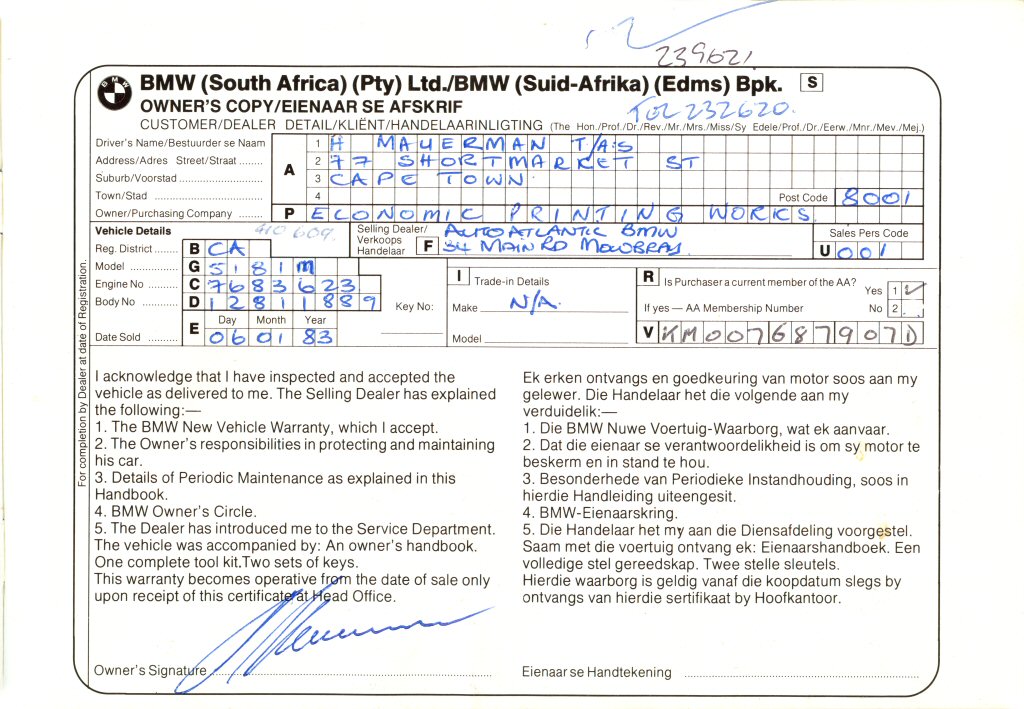 239621
BMW (South Africa) (Pty) Ltd./BMW (Suid-Afrika) (Edms) Bpk. S
OWNER'S COPY/EIENAAR SE AFSKRIF
TEL 232620.
CUSTOMER/DEALER DETAIL/KLIËNT/HANDELAARINLIGTING (The Hon./Prof./Dr./Rev./Mr./Mrs./Miss/Sy Edele/Prof./Dr./Eerw./Mnr./Mev./Mej.)
Driver's Name/Bestuurder se Naam A 1 H MAUERMAN T/AS
Address/Adres Street/Straat ........ 2 77 SHORTMARKET ST
Suburb/Voorstad ........ 3 CAPE TOWN
Town/Stad 4 Post Code 8001
Owner/Purchasing Company ........ P ECONOMIC PRINTING WORKS
Vehicle Details 410 609.
Selling Dealer/Verkoops Handelaar F AUTO ATLANTIC BMW
34 MAIN RD MOWBRAY
Sales Pers Code
U 001
Reg. District ........ B CA
Model ........ G 518i M
Engine No ........ C 7683623
Body No ........ D 12811889
Key No:
Day Month Year
Date Sold ........ E 06 01 83
I Trade-in Details
Make N/A.
Model
R Is Purchaser a current member of the AA? Yes 1 ✓
If yes — AA Membership Number No 2
V KM007687907D
For completion by Dealer at date of Registration.
I acknowledge that I have inspected and accepted the
vehicle as delivered to me. The Selling Dealer has explained
the following:—
1. The BMW New Vehicle Warranty, which I accept.
2. The Owner's responsibilities in protecting and maintaining
his car.
3. Details of Periodic Maintenance as explained in this
Handbook.
4. BMW Owner's Circle.
5. The Dealer has introduced me to the Service Department.
The vehicle was accompanied by: An owner's handbook.
One complete tool kit.Two sets of keys.
This warranty becomes operative from the date of sale only
upon receipt of this certificate at Head Office.
Owner's Signature
Ek erken ontvangs en goedkeuring van motor soos aan my
gelewer. Die Handelaar het die volgende aan my
verduidelik:—
1. Die BMW Nuwe Voertuig-Waarborg, wat ek aanvaar.
2. Dat die eienaar se verantwoordelikheid is om sy motor te
beskerm en in stand te hou.
3. Besonderhede van Periodieke Instandhouding, soos in
hierdie Handleiding uiteengesit.
4. BMW-Eienaarskring.
5. Die Handelaar het my aan die Diensafdeling voorgestel.
Saam met die voertuig ontvang ek: Eienaarshandboek. Een
volledige stel gereedskap. Twee stelle sleutels.
Hierdie waarborg is geldig vanaf die koopdatum slegs by
ontvangs van hierdie sertifikaat by Hoofkantoor.
Eienaar se Handtekening